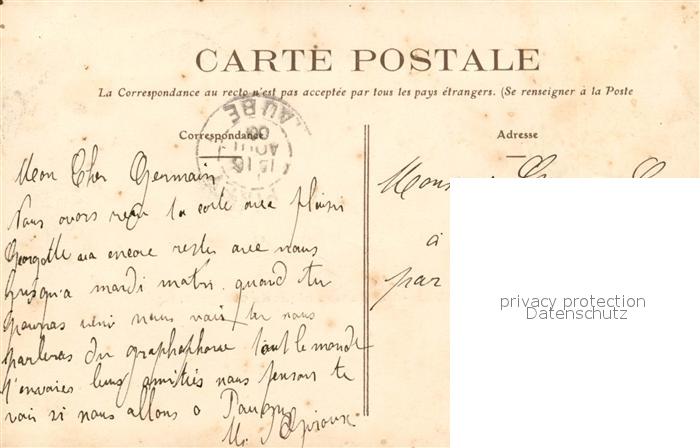 CARTE POSTALE
La Correspondance au recto n'est pas acceptée par tous les pays étrangers. (Se renseigner à la Poste
Correspondance
Adresse
AUBE
15 16
AOUT
09
Mon Cher Germain
Nous avons reçu ta carte avec plaisir
Georgette va encore rester avec nous
jusqu'a mardi matin quand tu
pourras venir nous voir tu nous
parleras du graphophone tout le monde
t'envoies leurs amitiés nous pensons te
voir si nous allons a
M.
Mons
à
par
privacy protection
Datenschutz